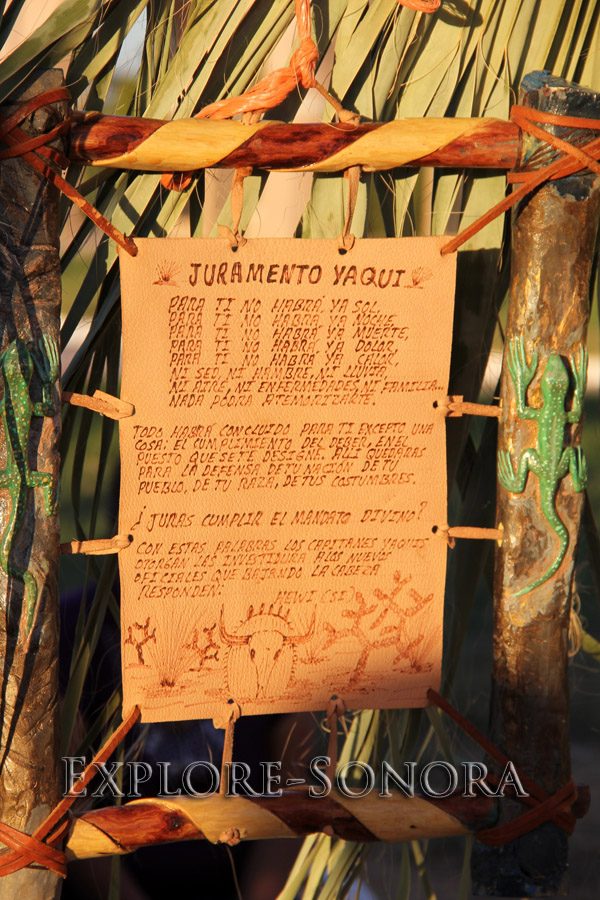 JURAMENTO YAQUI
PARA TI NO HABRÁ YA SOL,
PARA TI NO HABRÁ YA NOCHE,
PARA TI NO HABRÁ YA MUERTE,
PARA TI NO HABRÁ YA DOLOR,
PARA TI NO HABRÁ YA CALOR,
NI SED, NI HAMBRE, NI LLUVIA,
NI AIRE, NI ENFERMEDADES NI FAMILIA..
NADA PODRA ATEMORIZARTE.
TODO HABRÁ CONCLUIDO PARA TI EXCEPTO UNA
COSA: EL CUMPLIMIENTO DEL DEBER, EN EL
PUESTO QUE SE TE DESIGNE, ALLI QUEDARAS
PARA LA DEFENSA DE TU NACION, DE TU
PUEBLO, DE TU RAZA, DE TUS COSTUMBRES.
¿JURAS CUMPLIR EL MANDATO DIVINO?
CON ESTAS PALABRAS LOS CAPITANES YAQUIS
OTORGAN LAS INVESTIDURA A LOS NUEVOS
OFICIALES QUE BAJANDO LA CABEZA
RESPONDEN: HEWI (SI)
EXPLORE-SONORA